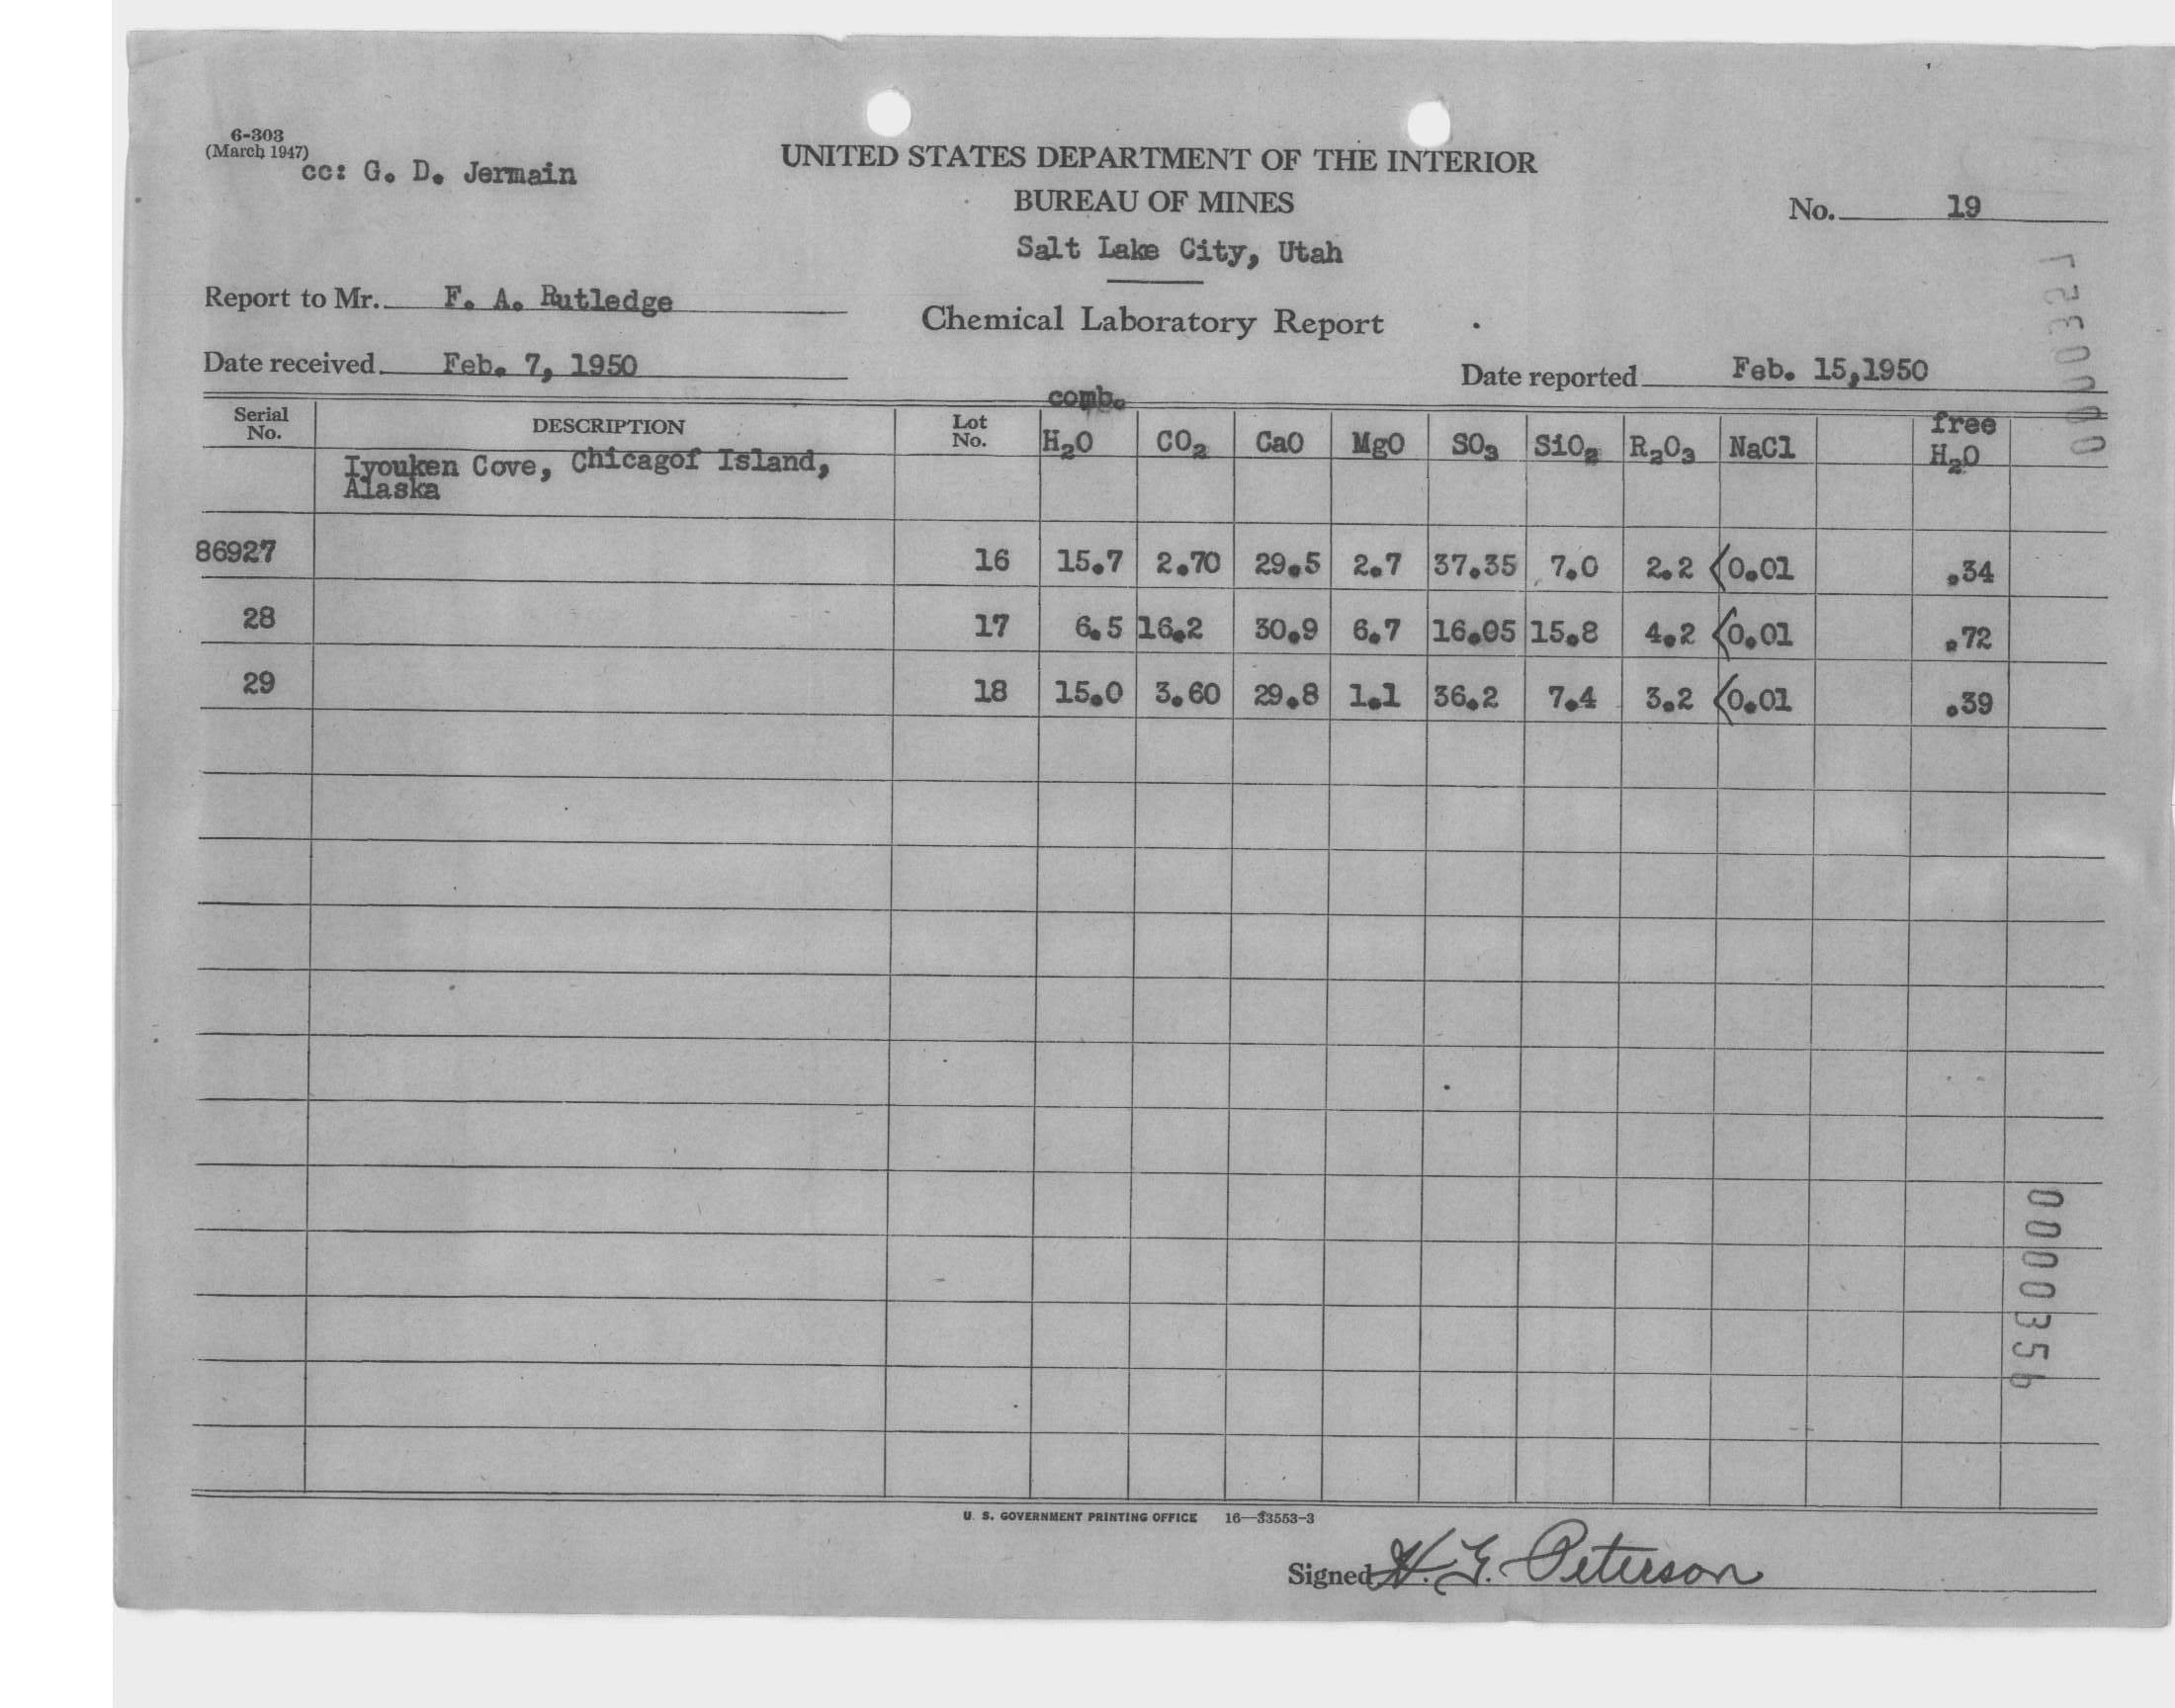 6-303
(March 1947)
cc: G. D. Jermain
UNITED STATES DEPARTMENT OF THE INTERIOR
BUREAU OF MINES
Salt Lake City, Utah
No. 19
Report to Mr. F. A. Rutledge
Chemical Laboratory Report
Date received Feb. 7, 1950
Date reported Feb. 15,1950
Serial No. DESCRIPTION Lot No. comb. H₂O CO₂ CaO MgO SO₃ SiO₂ R₂O₃ NaCl free H₂O
Iyouken Cove, Chicagof Island,
Alaska
86927 16 15.7 2.70 29.5 2.7 37.35 7.0 2.2 <0.01 .34
28 17 6.5 16.2 30.9 6.7 16.05 15.8 4.2 <0.01 .72
29 18 15.0 3.60 29.8 1.1 36.2 7.4 3.2 <0.01 .39
0000356
U. S. GOVERNMENT PRINTING OFFICE 16—33553-3
Signed H. G. Peterson